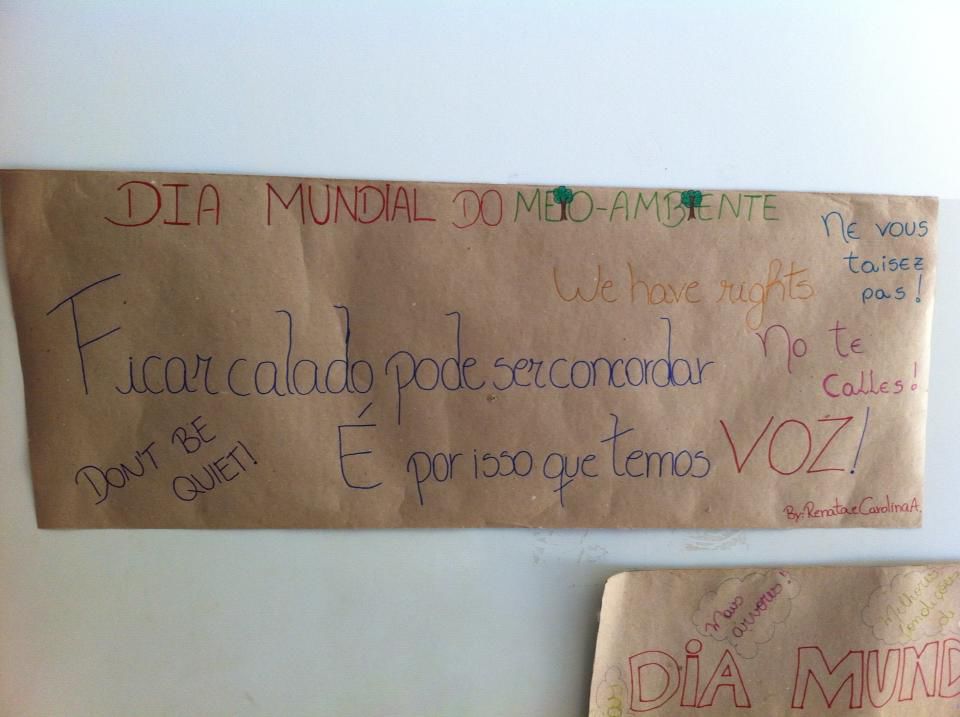 DIA MUNDIAL DO MEIO-AMBIENTE
Ne vous
taisez
pas!
We have rights
Ficar calado pode ser concordar
No te
Calles!
DON'T BE
QUIET!
É por isso que temos VOZ!
By: Renata e Carolina A.
Mais
árvores!
Melhores
condições
de
DIA MUND